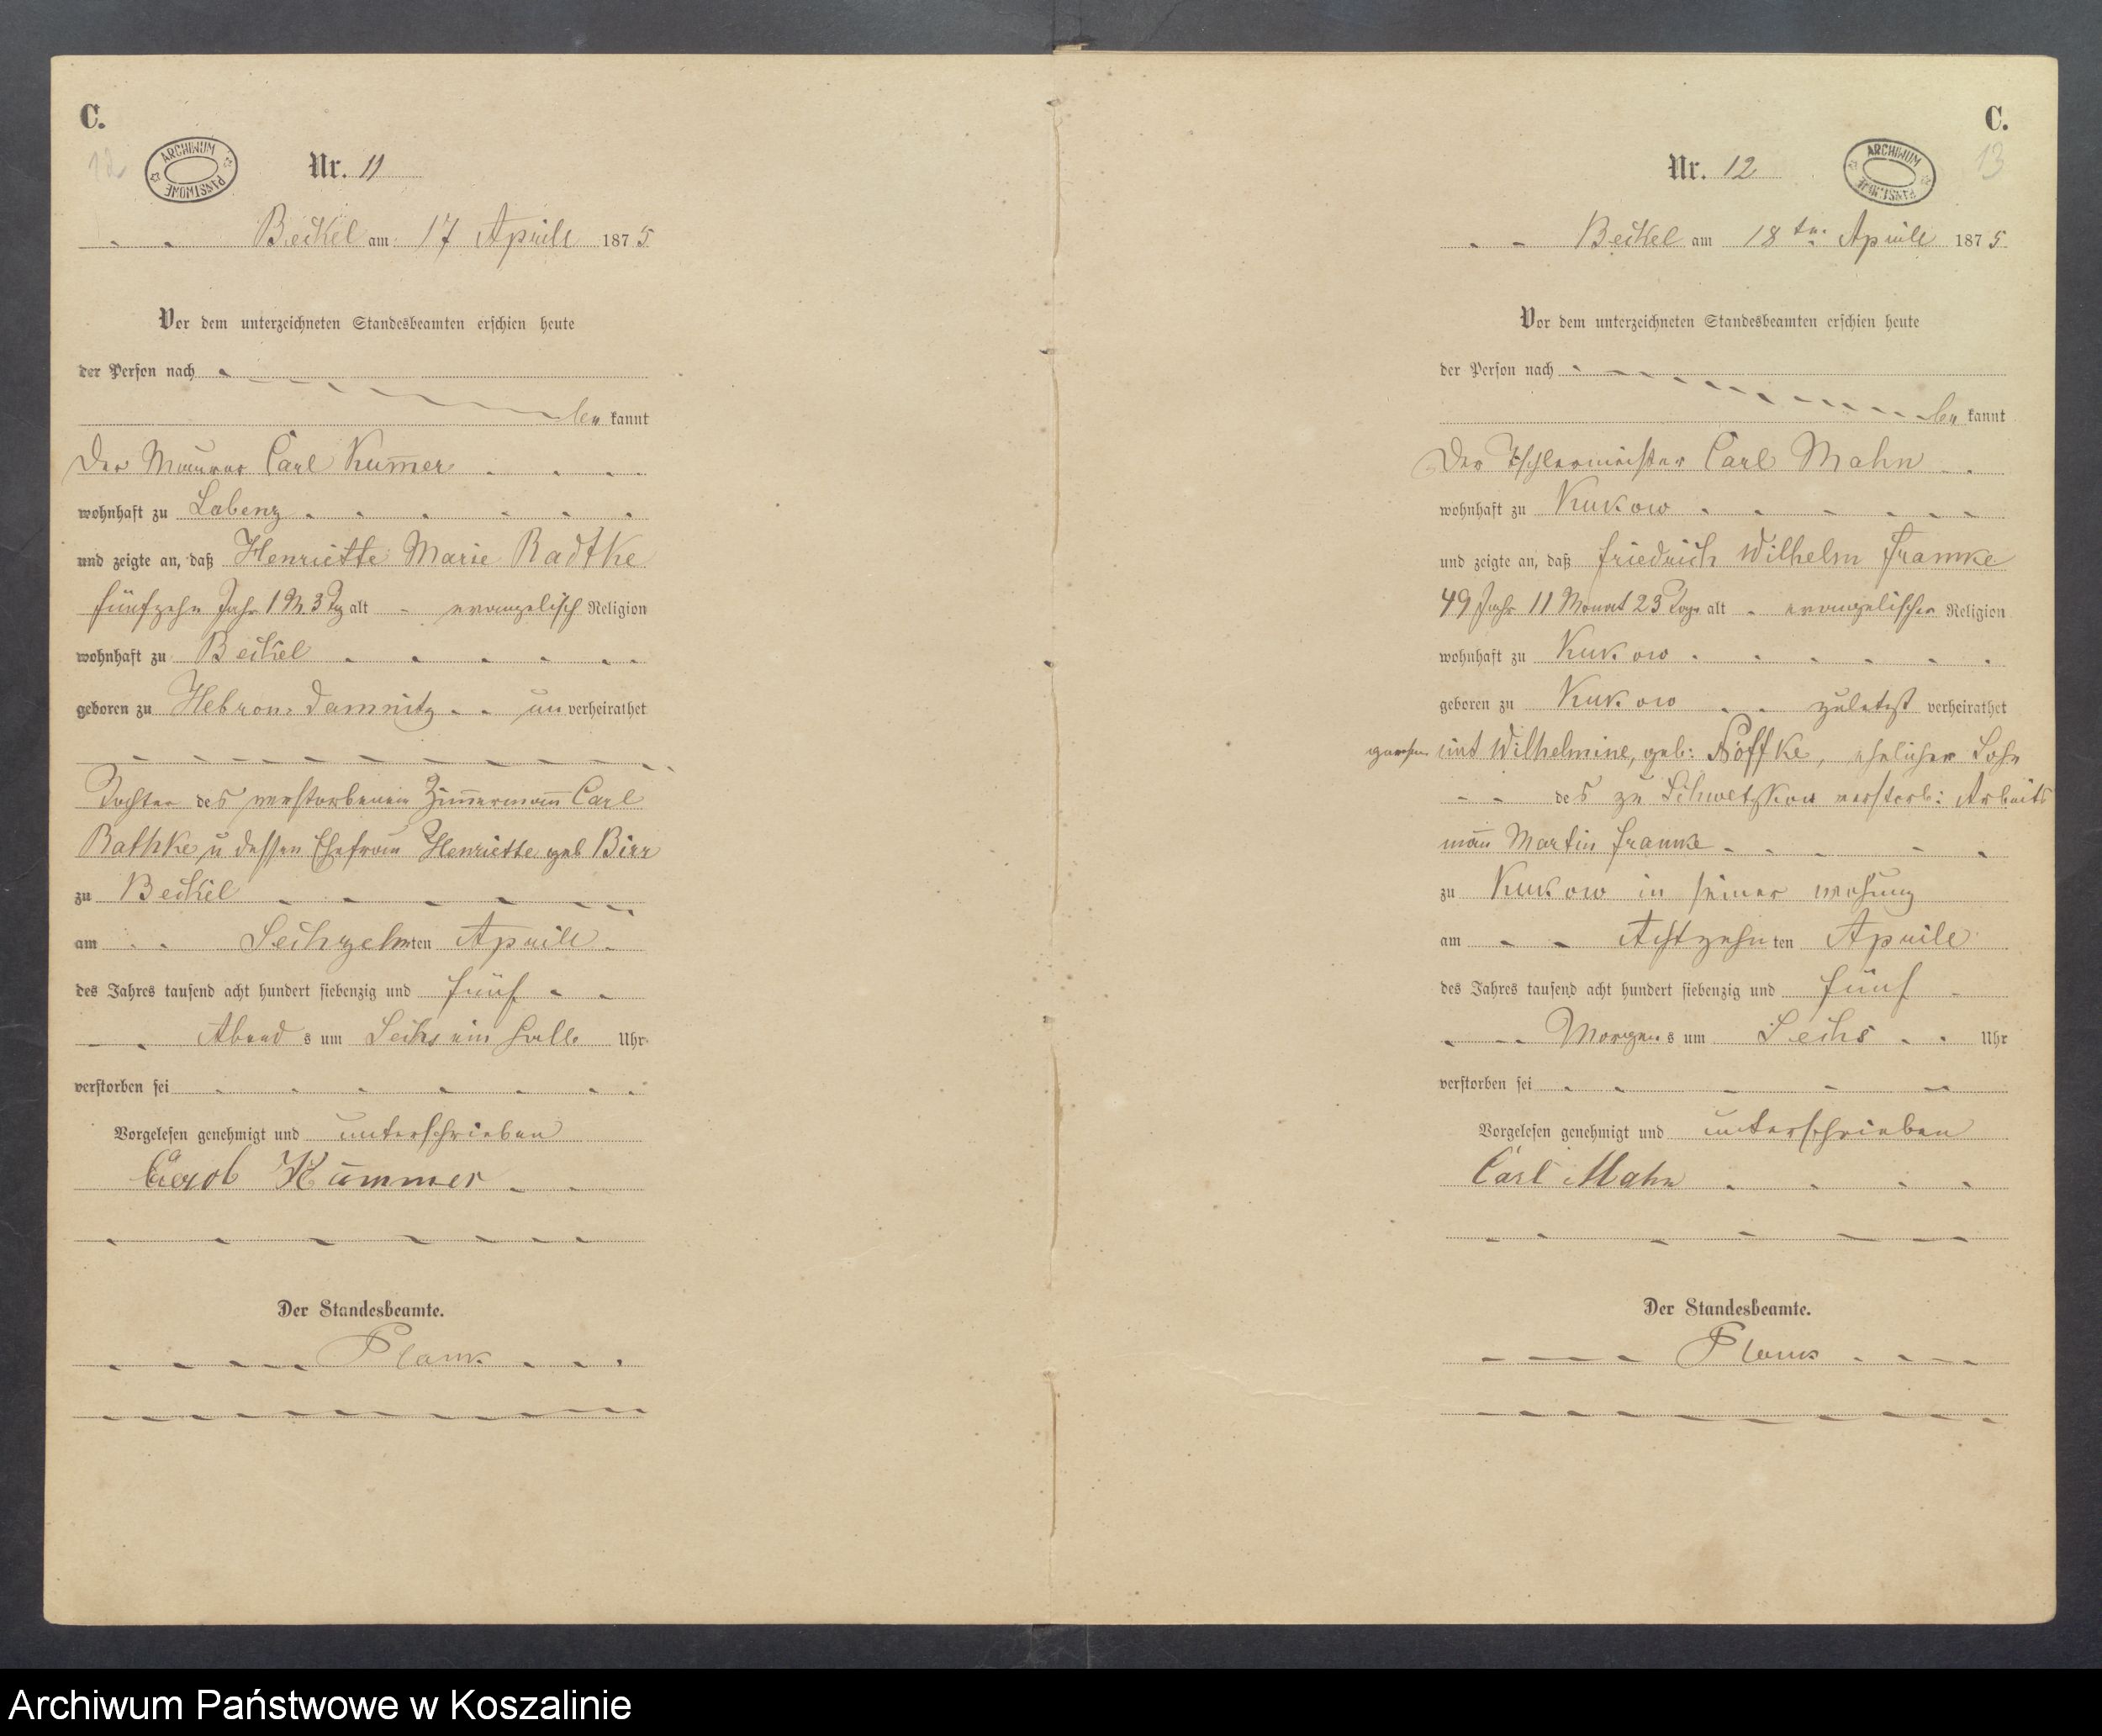 C.
12
ARCHIWUM PAŃSTWOWE
Nr. 11
Beckel am 17 Aprill 1875
Vor dem unterzeichneten Standesbeamten erschien heute
der Person nach
be kannt
Der Maurer Carl Kum̄er
wohnhaft zu Labenz
und zeigte an, daß Henriette Marie Radtke
fünfzehn Jahr 1 M 3 Tg alt evangelisch Religion
wohnhaft zu Beckel
geboren zu Hebron-Damnitz un verheirathet
Tochter des verstorbenen Zim̄erman̄ Carl
Rathke u dessen Ehefrau Henriette geb Birr
zu Beckel
am Sechzehnten Aprill
des Jahres tausend acht hundert siebenzig und fünf
Abend s um Sechs ein halb Uhr
verstorben sei
Vorgelesen genehmigt und unterschrieben
Kummer
Der Standesbeamte.
Plank
C.
13
ARCHIWUM PAŃSTWOWE
Nr. 12
Beckel am 18 tn. Aprill 1875
Vor dem unterzeichneten Standesbeamten erschien heute
der Person nach
be kannt
Der Tischlermeister Carl Mahn
wohnhaft zu Kukow
und zeigte an, daß Friedrich Wilhelm Franke
49 Jahr 11 Monat 23 Tage alt evangelischer Religion
wohnhaft zu Kukow
geboren zu Kukow zuletzt verheirathet
gewesen mit Wilhelmine, geb: Noffke, ehelicher Sohn
des zu Schwetzkow verstorb: Arbeits
man̄ Martin Franke
zu Kukow in seiner Wohung
am Achtzehn ten Aprill
des Jahres tausend acht hundert siebenzig und fünf
Morgen s um Sechs Uhr
verstorben sei
Vorgelesen genehmigt und unterschrieben
Carl Mahn
Der Standesbeamte.
Plank
Archiwum Państwowe w Koszalinie